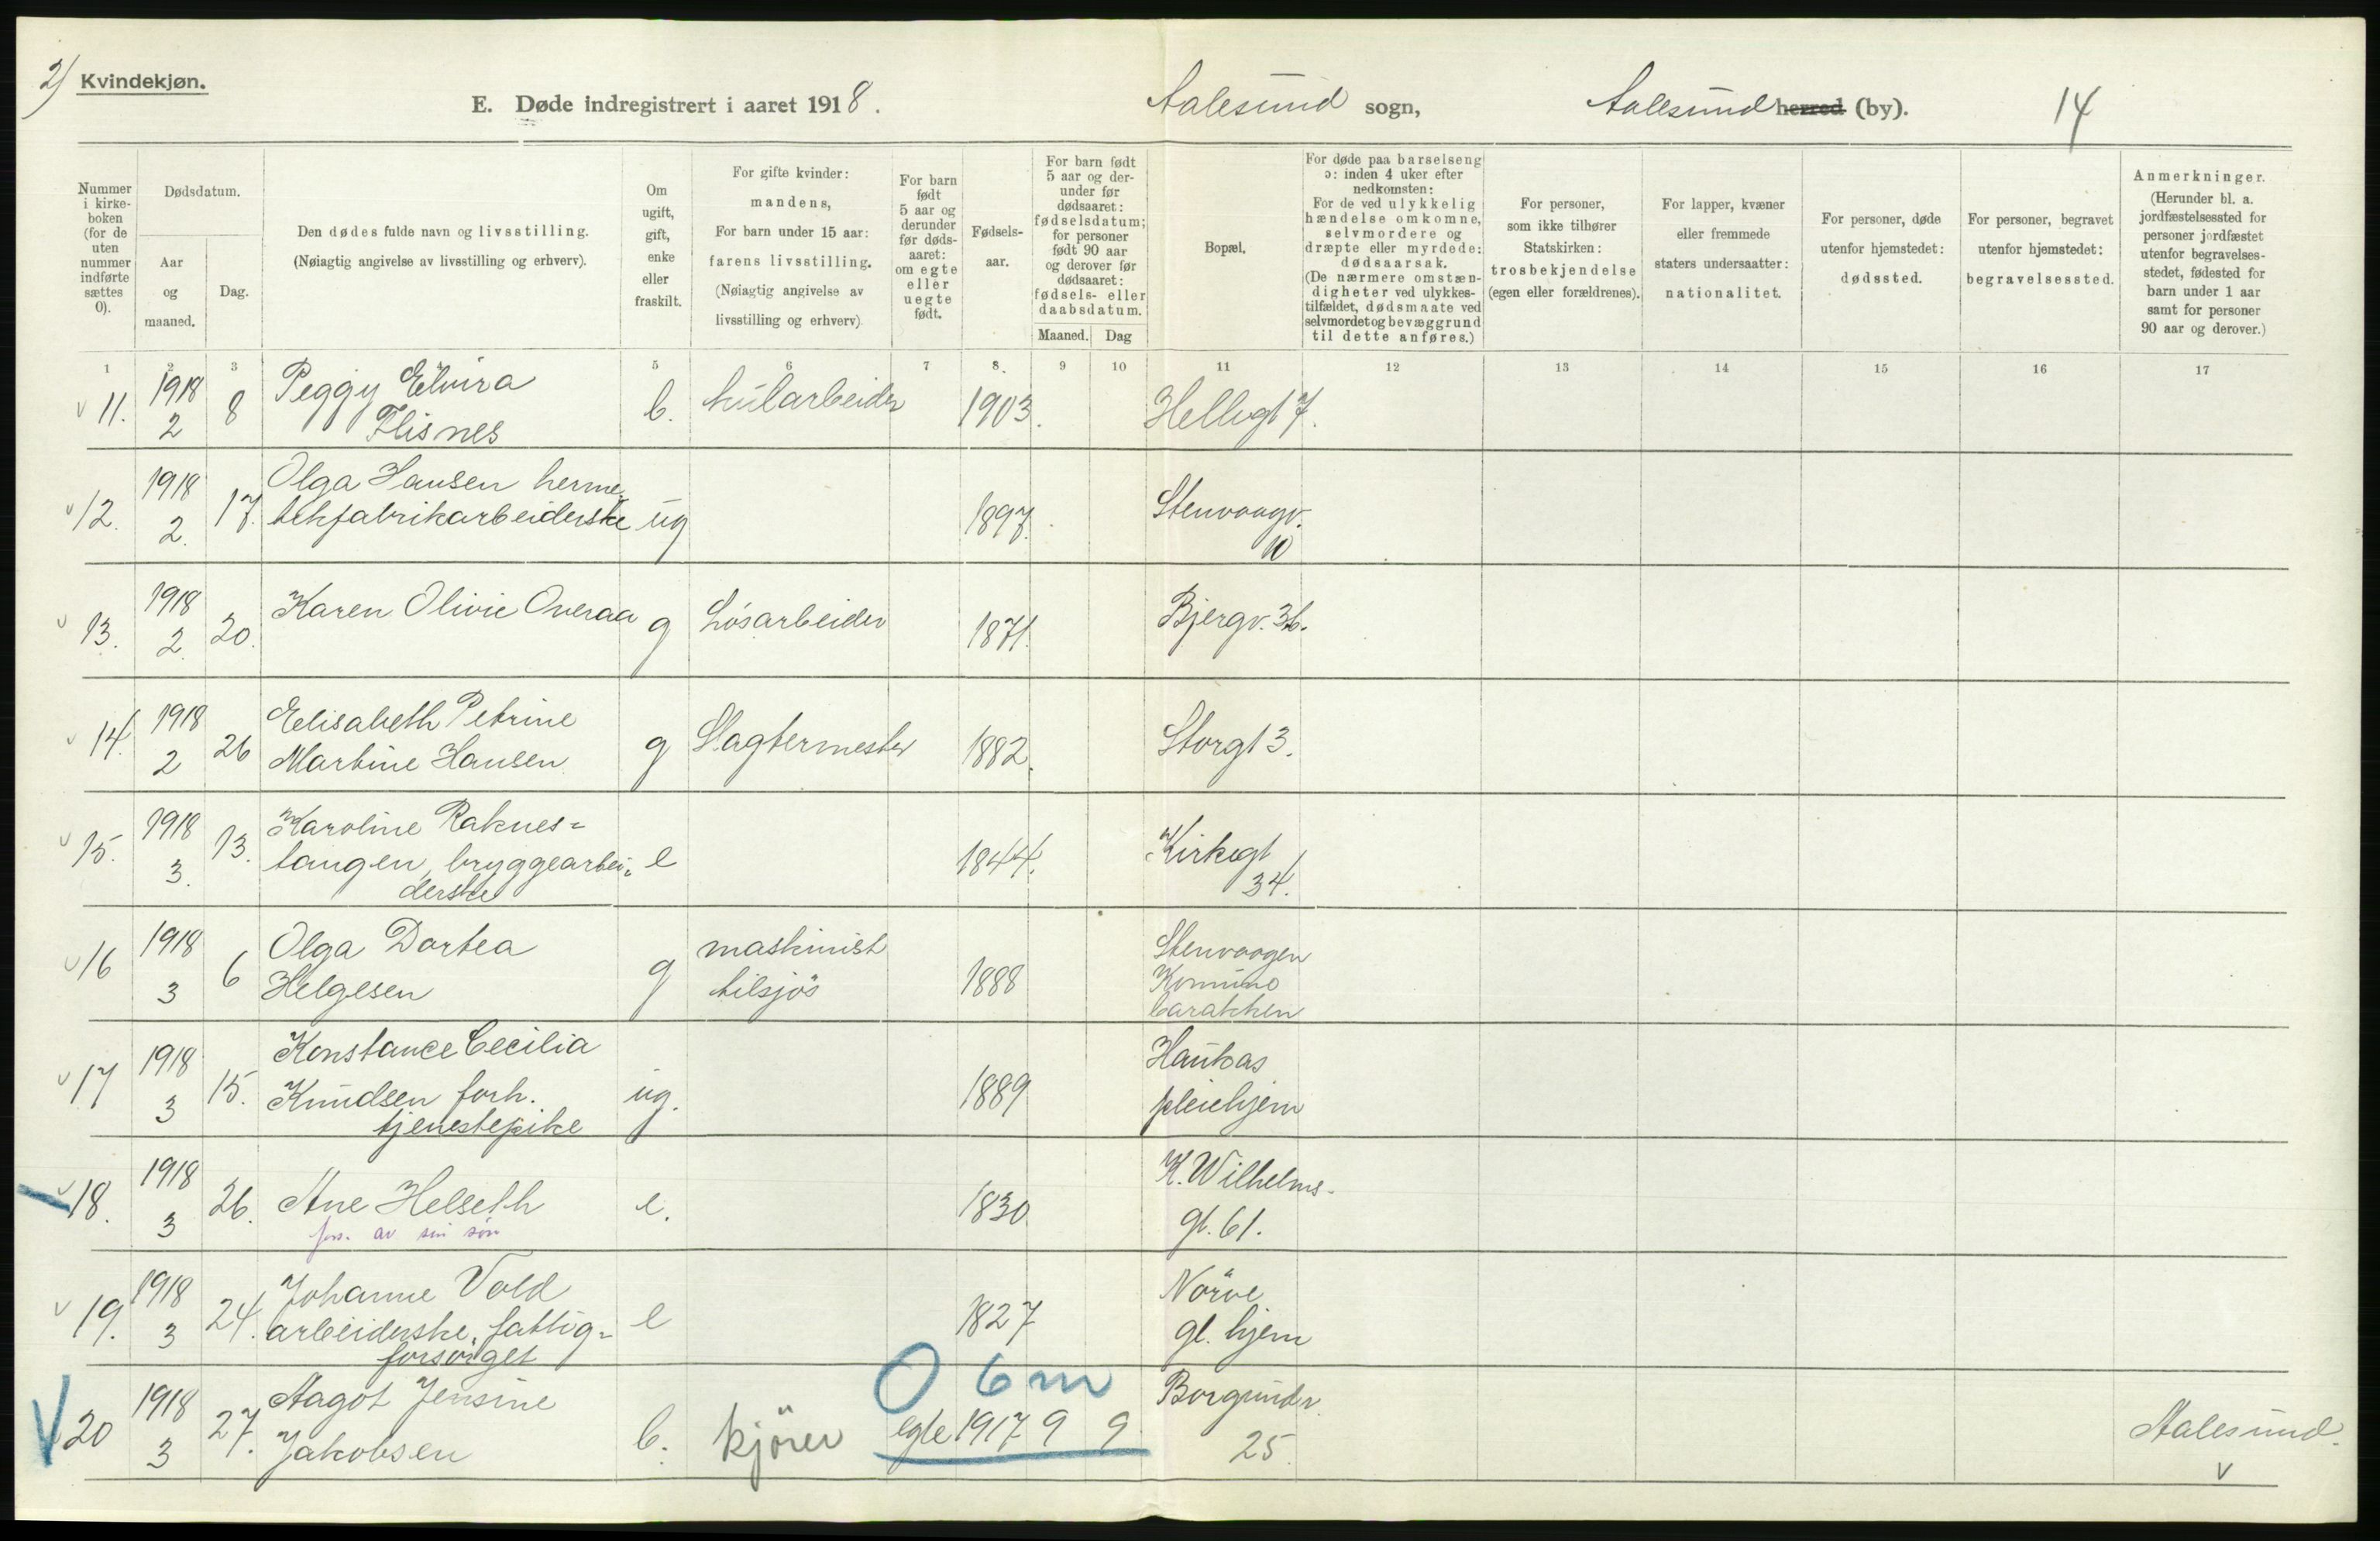 2) Kvindekjøn.
E. Døde indregistrert i aaret 1918. Aalesund sogn, Aalesund herred (by). 14
Nummer i kirkeboken (for de uten nummer indførte sættes 0).
Dødsdatum.
Aar og maaned.
Dag.
Den dødes fulde navn og livsstilling.
(Nøiagtig angivelse av livsstilling og erhverv).
Om ugift, gift, enke eller fraskilt.
For gifte kvinder: mandens,
For barn under 15 aar: farens livsstilling.
(Nøiagtig angivelse av livsstilling og erhverv)
For barn født 5 aar og derunder før dødsaaret: om egte eller uegte født.
Fødselsaar.
For barn født 5 aar og derunder før dødsaaret: fødselsdatum; for personer født 90 aar og derover før dødsaaret: fødsels- eller daabsdatum.
Maaned. Dag
Bopæl.
For døde paa barselseng ɔ: inden 4 uker efter nedkomsten:
For de ved ulykkelig hændelse omkomne, selvmordere og dræpte eller myrdede: dødsaarsak.
(De nærmere omstændigheter ved ulykkestilfældet, dødsmaate ved selvmordet og bevæggrund til dette anføres.)
For personer, som ikke tilhører Statskirken: trosbekjendelse (egen eller forældrenes).
For lapper, kvæner eller fremmede staters undersaatter: nationalitet.
For personer, døde utenfor hjemstedet: dødssted.
For personer, begravet utenfor hjemstedet: begravelsessted.
Anmerkninger.
(Herunder bl. a. jordfæstelsessted for personer jordfæstet utenfor begravelsesstedet, fødested for barn under 1 aar samt for personer 90 aar og derover.)
1 2 3 5 6 7 8. 9 10 11 12 13 14 15 16 17
v 11. 1918 2 8 Peggy Elvira Flisnes b. kularbeider 1903. Hellegt 7.
v 12. 1918 2. 17. Olga Hansen hermetikfabrikarbeiderske ug 1897. Stenvaagv. 10
v 13. 1918 2. 20. Karen Olivie Overaa g Løsarbeider 1871. Bjergv. 36.
v 14. 1918 2 26 Elisabeth Petrine Martine Hansen g Slagtermester 1882. Storgt 3.
v 15. 1918 3. 13. Karoline Raknes=tangen, bryggearbeiderske e 1844. Kirkegt 34.
v 16 1918 3 6 Olga Dortea Helgesen g maskinist tilsjøs 1888 Stenvaagen Komune barakken
v 17 1918 3 15. Konstance Cecilia Knudsen forh. tjenestepike ug. 1889 Haukas pleiehjem
v 18. 1918 3 26. Ane Helseth e. 1830. K. Wilhelms-gt. 61.
fors. av sin søn
v 19. 1918 3 24. Johanne Vold arbeiderske, fattig=forsørget e 1827 Nørve gl. hjem
0 6 m
V 20 1918 3 27. Aagot Jensine Jakobsen b. kjører egte 1917 9 9 Borgundv. 25. Aalesund.
v